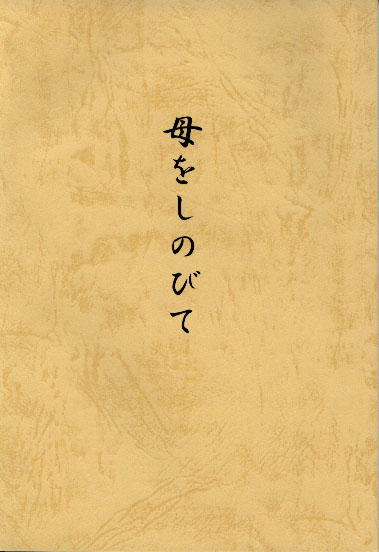 母をしのびて